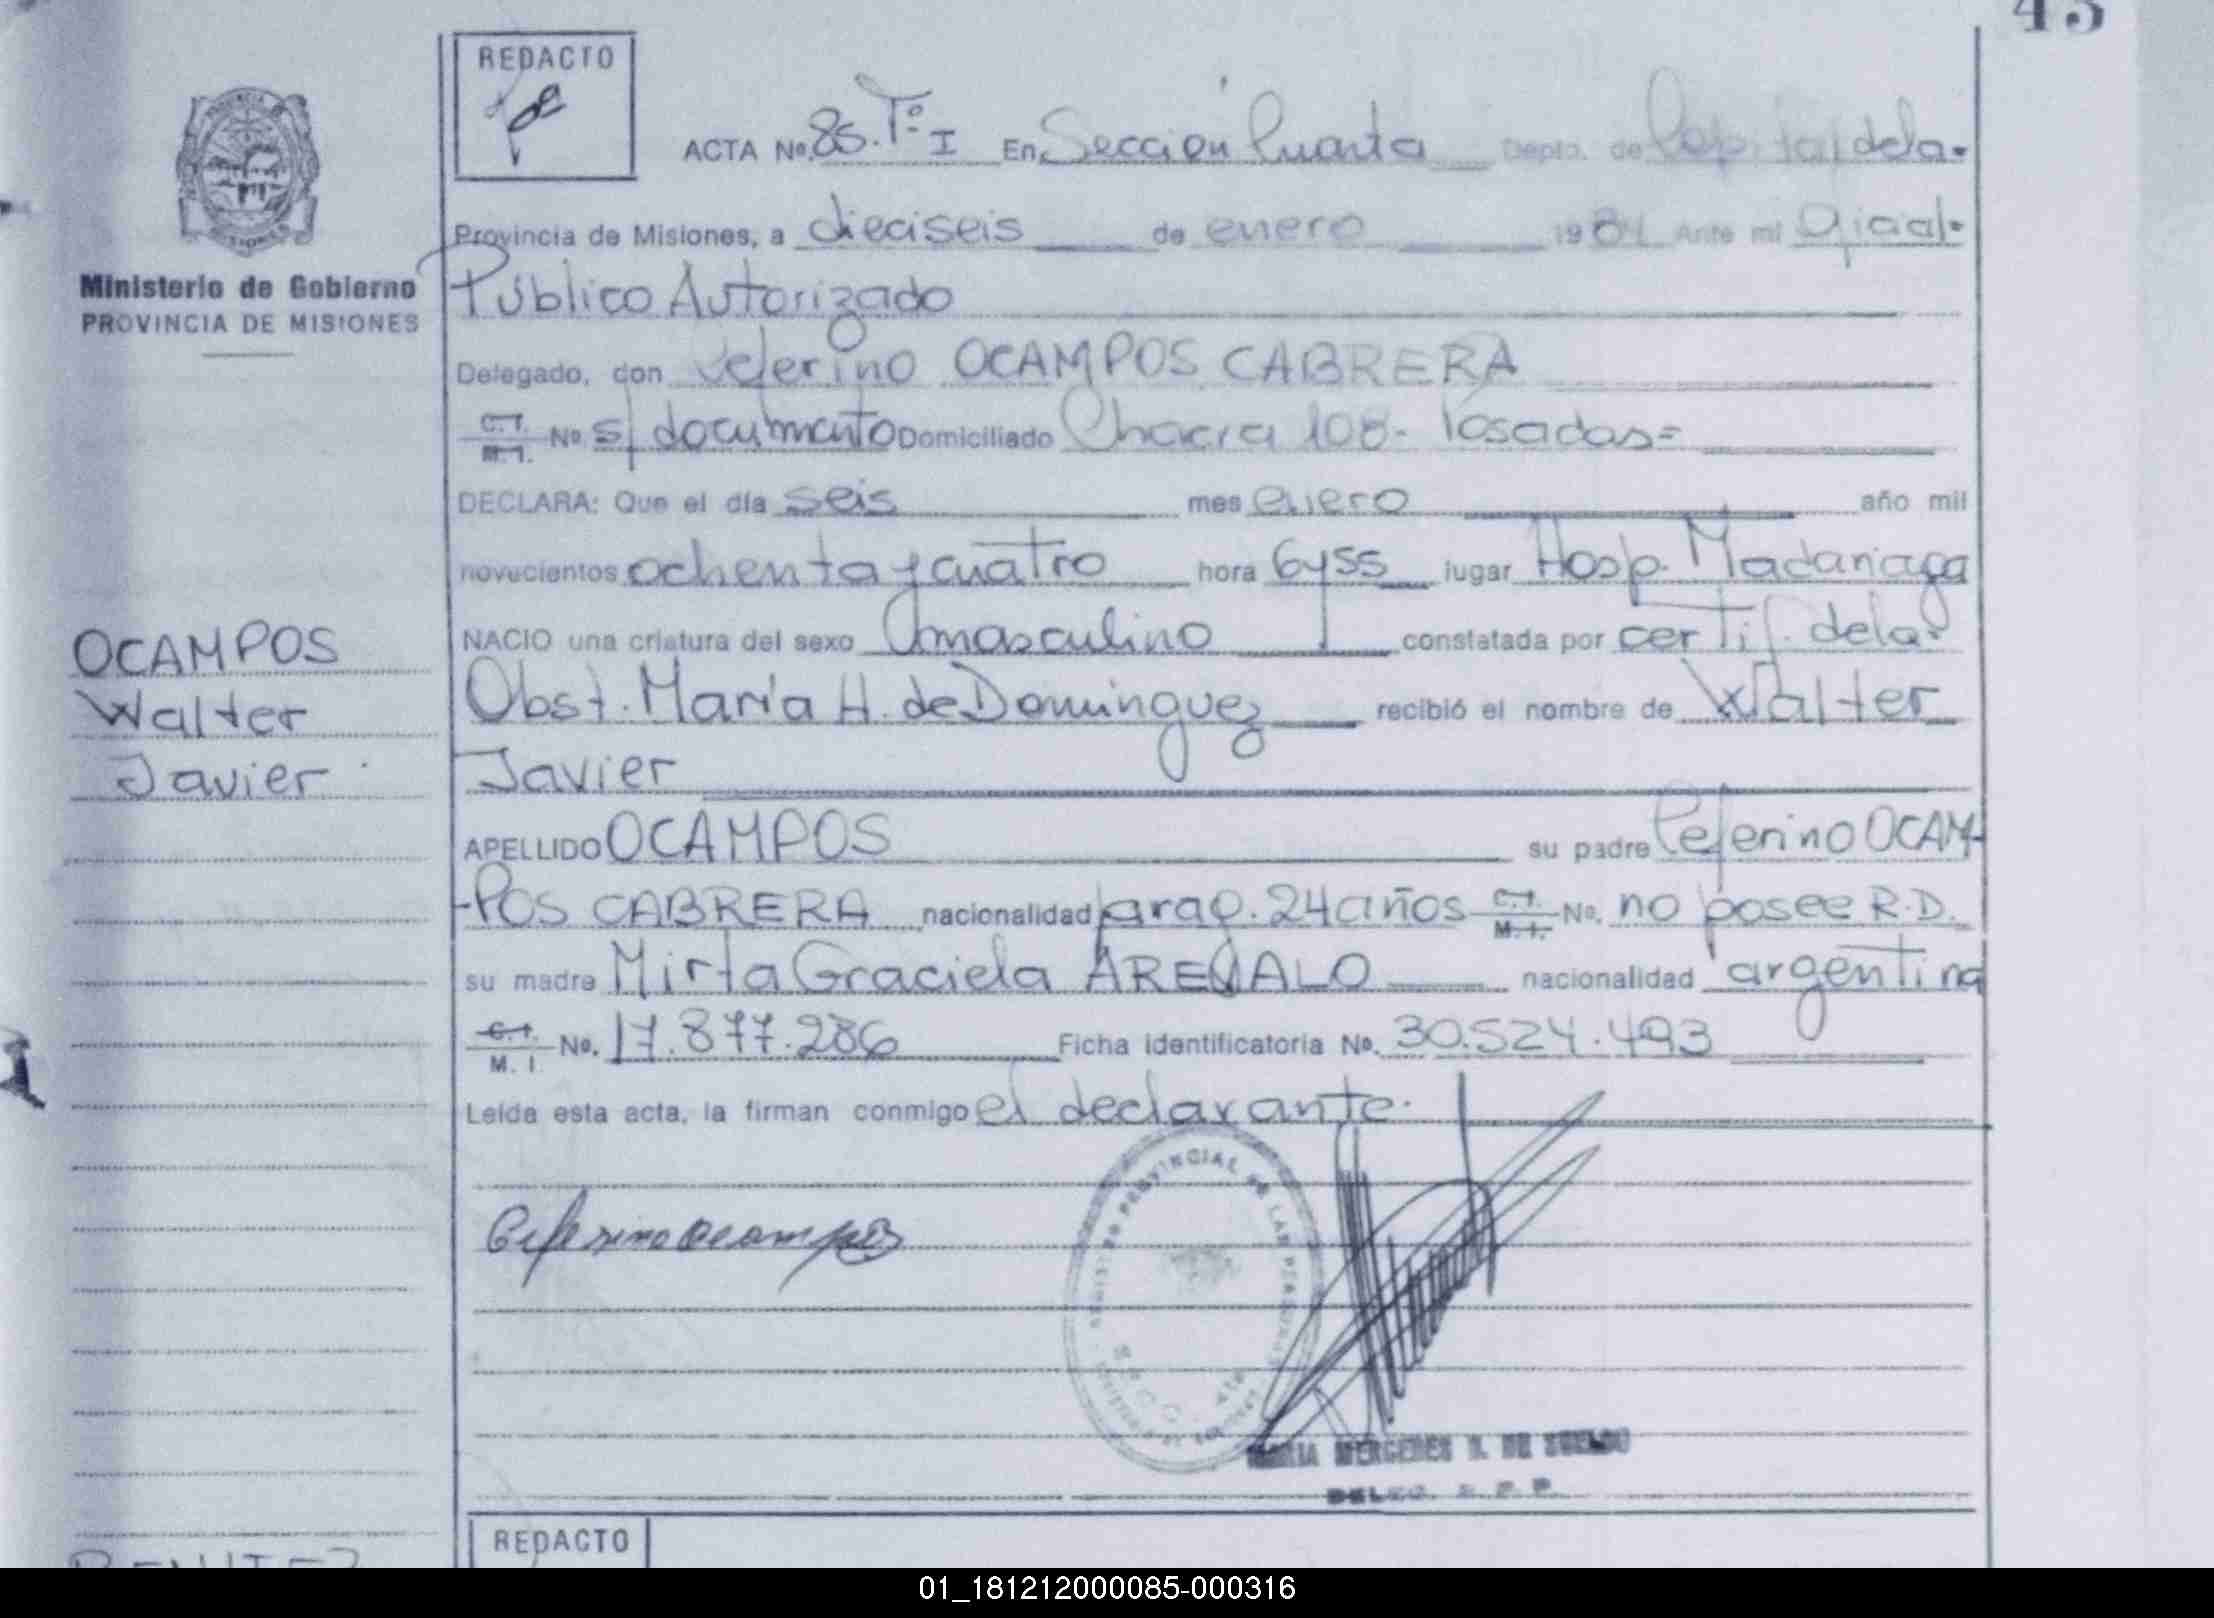 45
REDACTO
ACTA No. 85. Tº I En Sección Cuarta Depto. de Capital de la
Provincia de Misiones, a dieciseis de enero 1984 Ante mi Oficial
Ministerio de Gobierno
PROVINCIA DE MISIONES
Público Autorizado
Delegado, don Ceferino OCAMPOS CABRERA
C.I. M.I. No. s/ documento Domiciliado Chacra 108- Posadas=
DECLARA: Que el día seis mes enero año mil
novecientos ochenta y cuatro hora 6y55 lugar Hosp. Madariaga
NACIO una criatura del sexo masculino constatada por certif. de la
Obst. María H. de Domínguez recibió el nombre de Walter
Javier
APELLIDO OCAMPOS su padre Ceferino OCAM-
-POS CABRERA nacionalidad parag. 24 años C.I. M.I. No. no posee R.D.
su madre Mirta Graciela AREVALO nacionalidad argentina
C.I. M.I. No. 17.877.286 Ficha Identificatoria No. 30.524.493
Leída esta acta, la firman conmigo el declarante.
OCAMPOS
Walter
Javier
Ceferino Ocampos
REGISTRO PROVINCIAL DE LAS PERSONAS
MARIA MERCEDES DE
DELEG. R. P. P.
REDACTO
BENITEZ
01_181212000085-000316